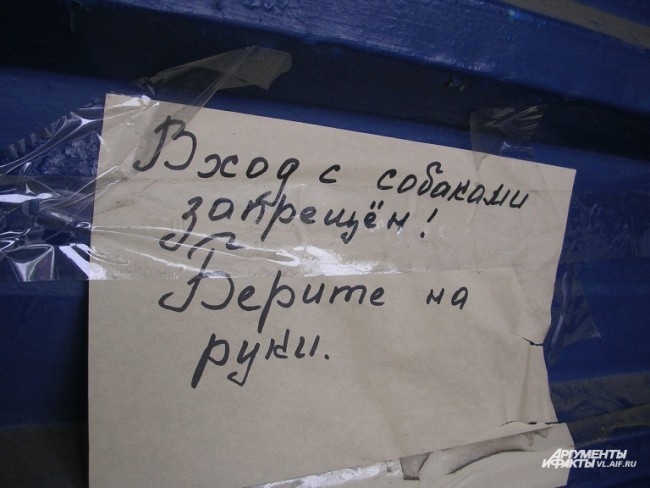 Вход с собаками
запрещён!
Берите на
руки.
АРГУМЕНТЫ
И ФАКТЫ VL.AIF.RU